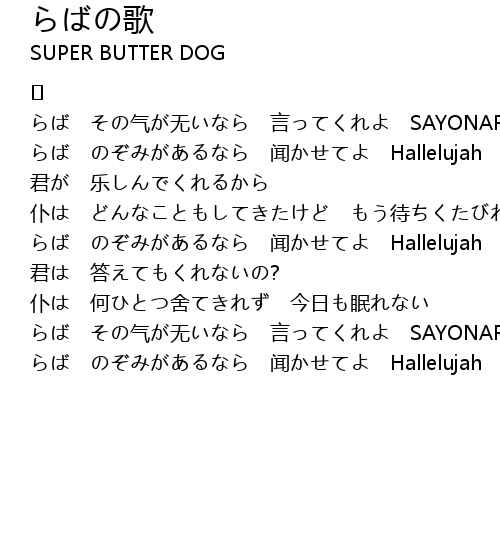 らばの歌
SUPER BUTTER DOG
らば　その气が无いなら　言ってくれよ　SAYONAR
らば　のぞみがあるなら　闻かせてよ　Hallelujah
君が　乐しんでくれるから
仆は　どんなこともしてきたけど　もう待ちくたびれ
らば　のぞみがあるなら　闻かせてよ　Hallelujah
君は　答えてもくれないの?
仆は　何ひとつ舍てきれず　今日も眠れない
らば　その气が无いなら　言ってくれよ　SAYONAR
らば　のぞみがあるなら　闻かせてよ　Hallelujah